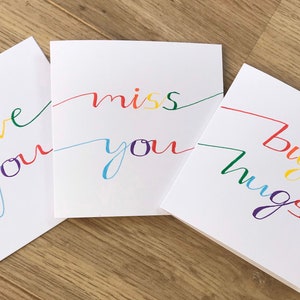 ve
you
miss
you
big
hugs